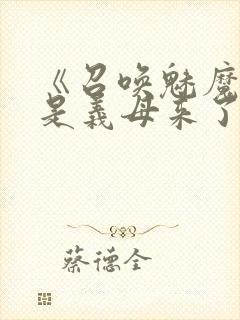 《召唤魅魔
是义母来了
蔡德全